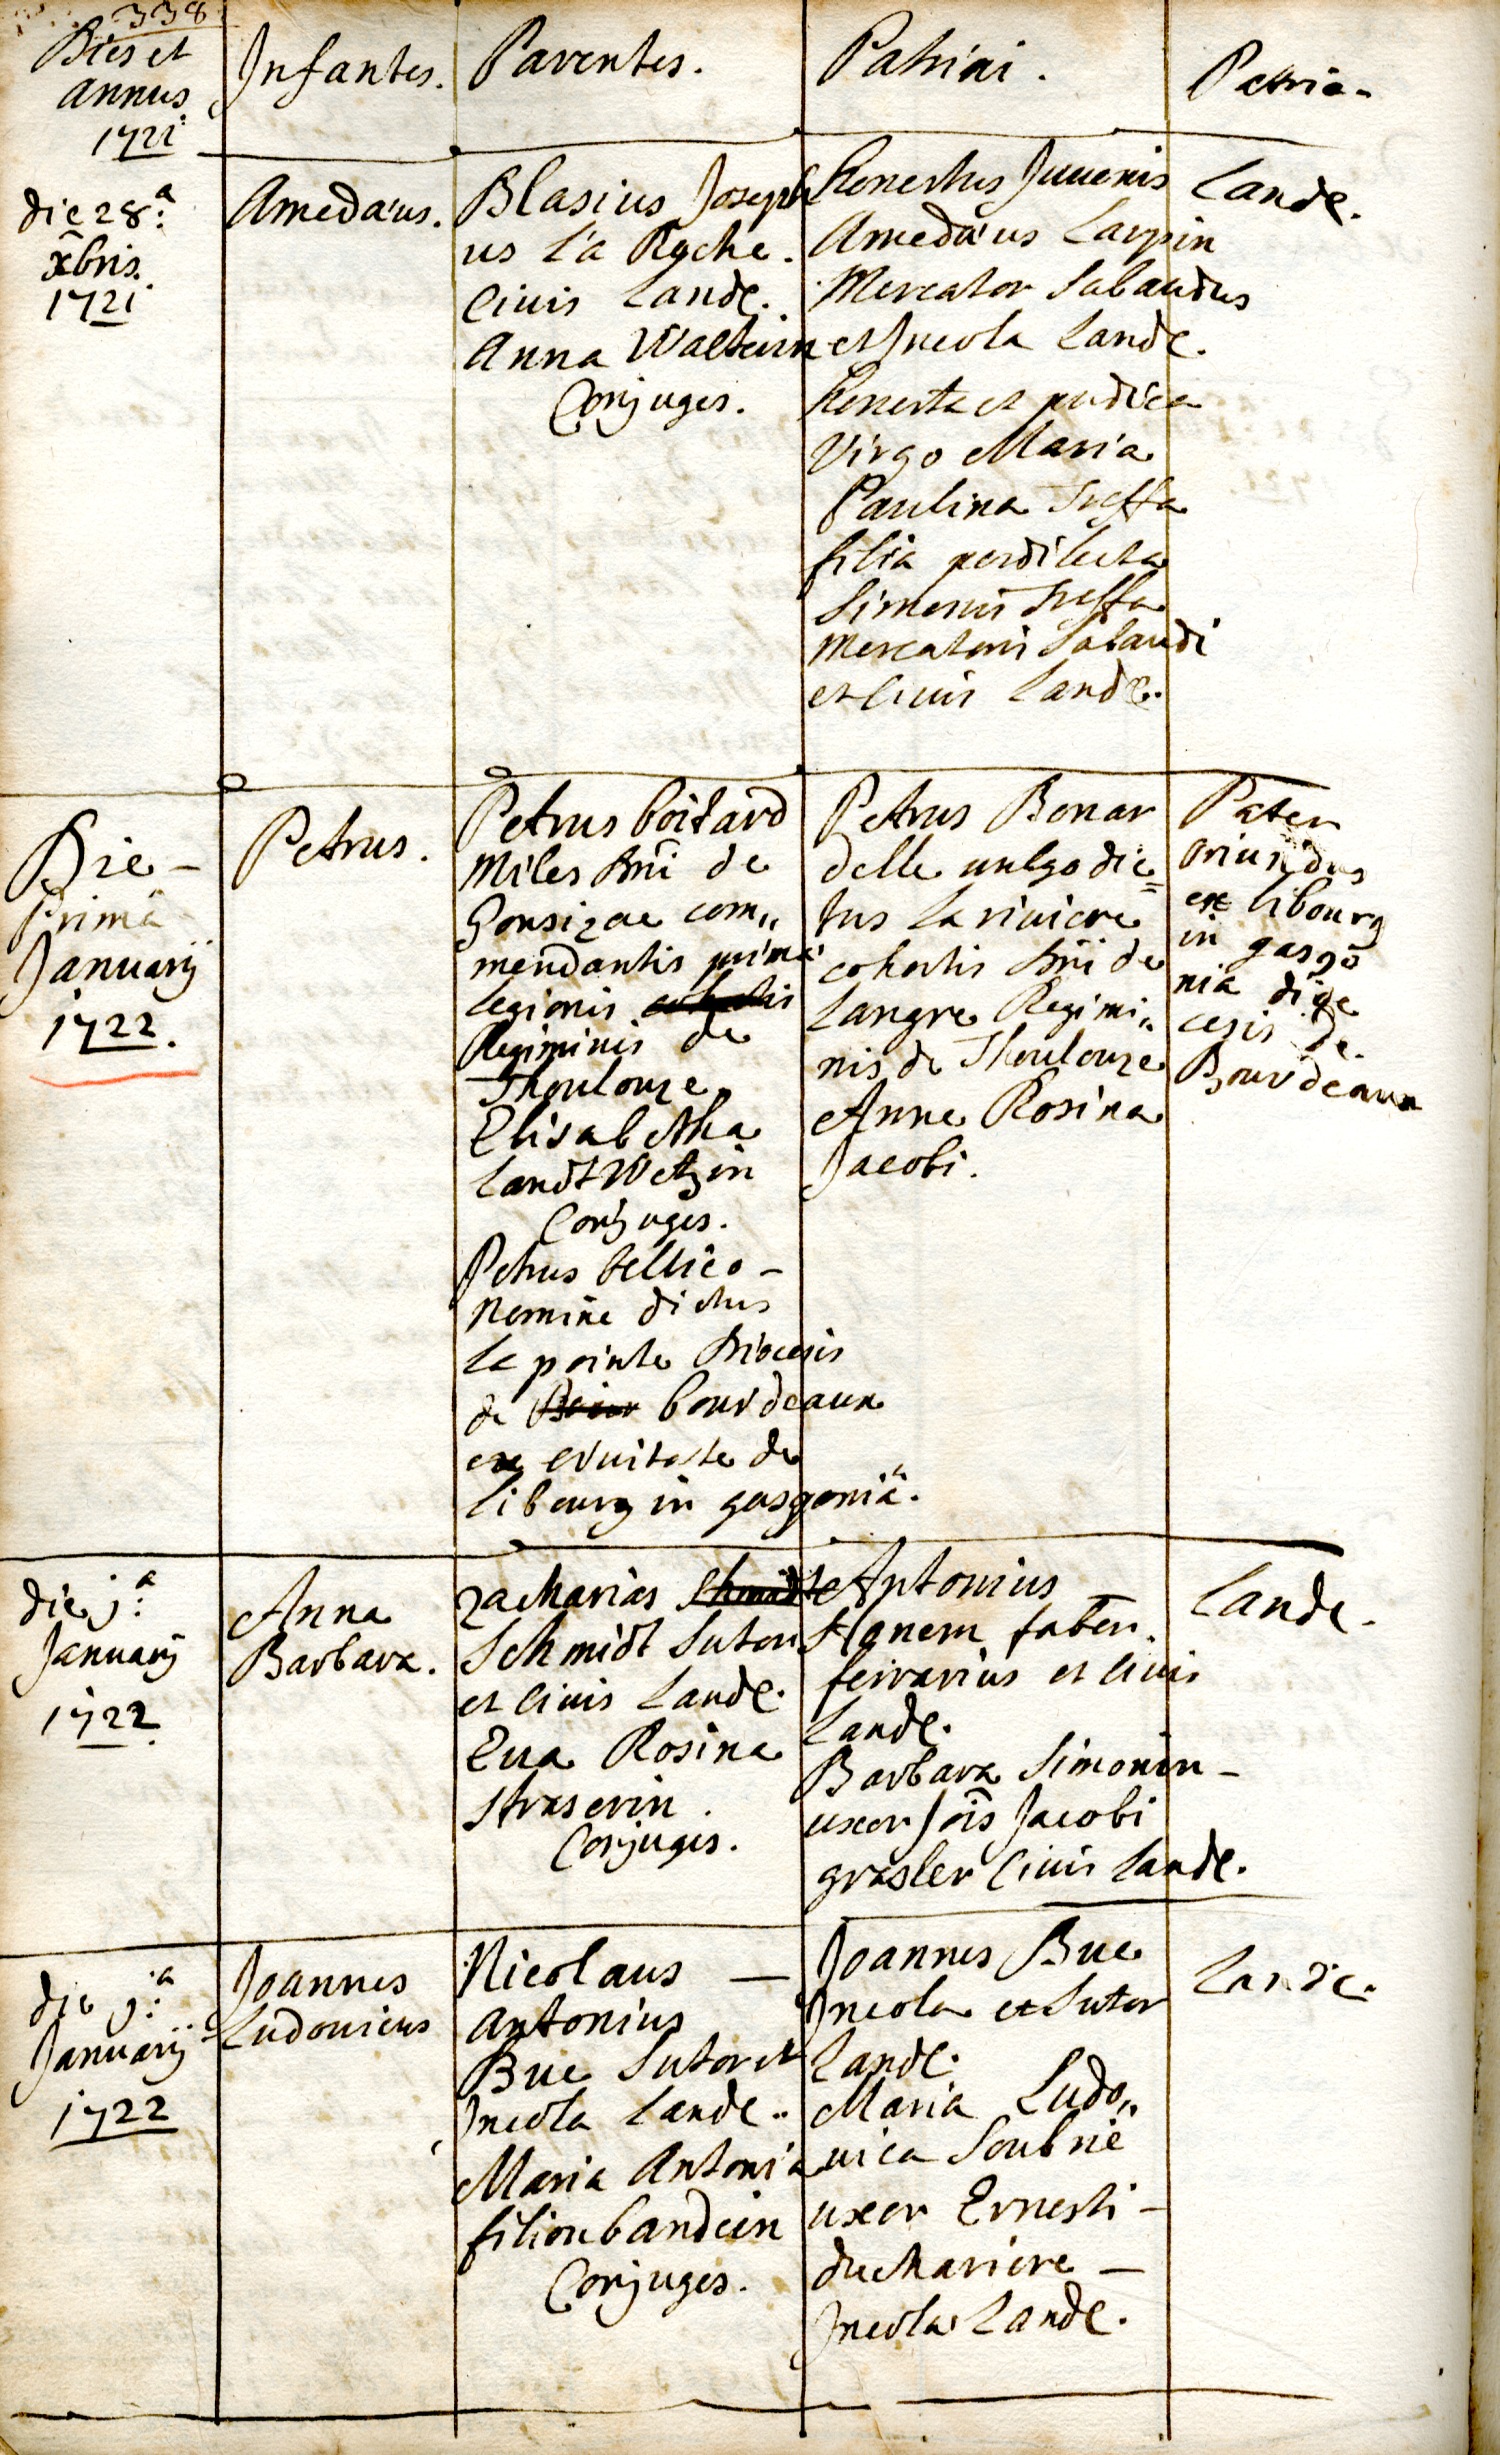 338
Dies et
annus
1721
Infantes.
Parentes.
Patrini.
Patria.
die 28.a
xbris.
1721
Amedæus.
Blasius Joseph
us La Roche.
Civis Landæ.
Anna Walterin
Conjuges.
honestus Juvenis
Amedæus Larpin
Mercator Sabaudus
et Incola Landæ.
honesta et pudica
Virgo Maria
Paulina Treffa
filia perdilecta
Simonis Treffa
Mercatoris Sabaudi
et Civis Landæ.
Landæ.
Die
Prima
Januarij
1722.
Petrus.
Petrus boitard
Miles Dni de
Gonsizae com„
mendantis primæ
legionis cohortis
Regiminis de
Thoulouze
Elisabetha
Landtwetzin
Conjuges.
Petrus bellico
nomine dictus
la pointe Diœcesis
de bourdeaux
ex civitate de
libourg in gasgoniâ.
Petrus Bonar
delle vulgo dic=
tus La riviere
cohortis Dni de
Langre Regimi„
nis de Thoulouze
Anna Rosina
Jacobi.
Pater
oriundus
ex libourg
in gasgo
nia diœ
cesis de
Bourdeaux
die j.a
Januarij
1722
Anna
Barbara.
Zacharias Schmidt
Schmidt Sutor
et Civis Landæ.
Eva Rosina
Straserin.
Conjuges.
Antonius
Hanem faber
ferrarius et Civis
Landæ.
Barbara Simonin
uxor Jois Jacobi
grasler Civis Landæ.
Landæ.
die 9.a
Januarij
1722
Joannes
Ludovicus
Nicolaus
Antonius
Bue Sutor et
Incola Landæ.
Maria Antonia
filionbandein
Conjuges.
Joannes Bue
Incola et Sutor
Landæ.
Maria Ludo„
vica Soubrie
uxor Ernesti
ducharière
Incola Landæ.
Landæ.